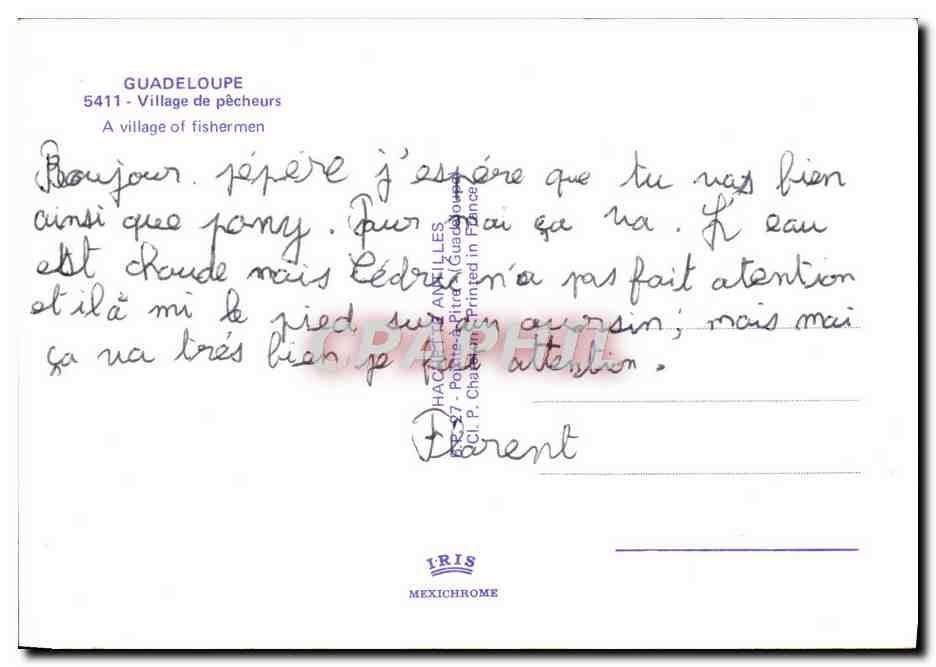 GUADELOUPE
5411 - Village de pêcheurs
A village of fishermen
Boujour pépére j'espére que tu vas bien
ainsi que pony. Pour moi ça va. L'eau
est chaude mais Cédric n'a pas fait atention
et il à mi le pied sur un oursin; mais moi
ça va trés bien je fait attention.
Florent
HACHETTE ANTILLES
B.P. 27 - Pointe-à-Pitre (Guadeloupe)
Cl. P. Chareton Printed in France
CPAPHIL
IRIS
MEXICHROME